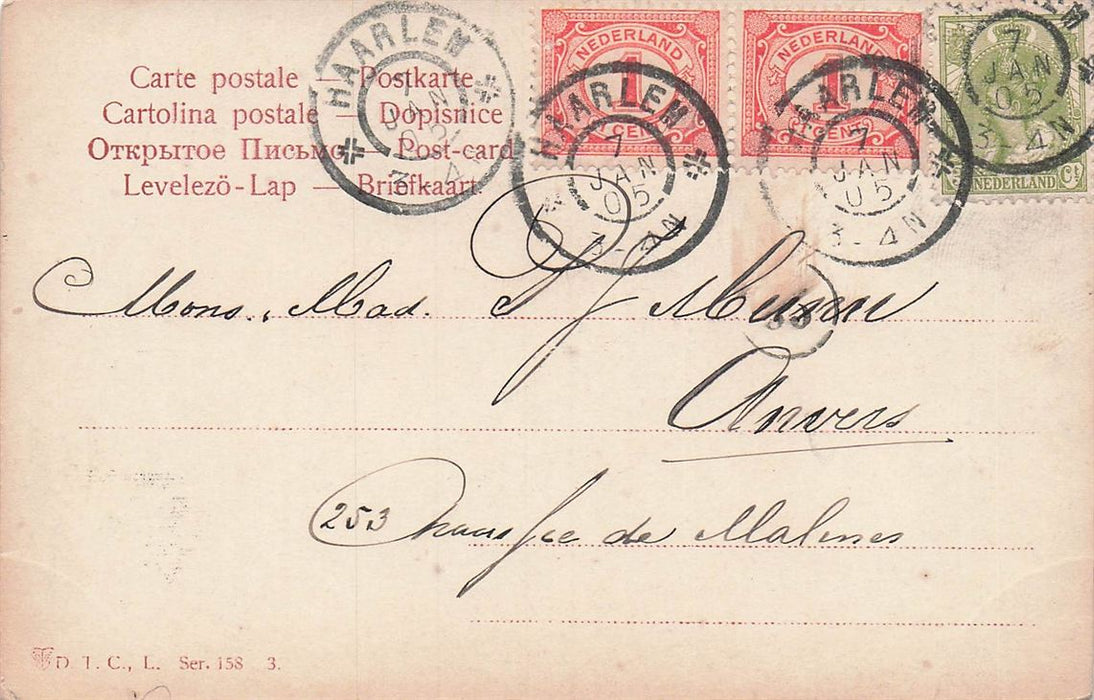 Carte postale — Postkarte
Cartolina postale — Dopisnice
Открытое Письмо — Post-card
Levelező-Lap — Briefkaart
HAARLEM
7 JAN 05
3-4N
NEDERLAND
1
CENT
HAARLEM
7 JAN 05
3-4N
NEDERLAND
1
CENT
HAARLEM
7 JAN 05
3-4N
7 JAN 05
3-4N
NEDERLAND Ct
Mons., Mad.
Anvers
253 Chaussée de Malines
D. T. C., L. Ser. 158 3.